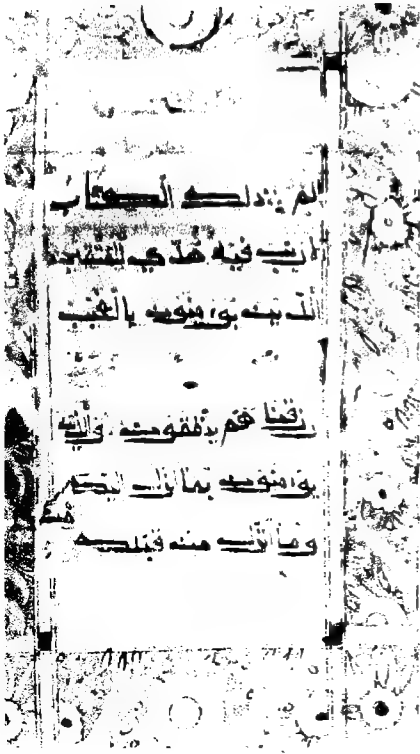 الم ذلك الكتاب
لا ريب فيه هدى للمتقين
الذين يومنون بالغيب
رزقنا هم ينفقون والذين
يومنون بما انزل اليك
وما انزل من قبلك